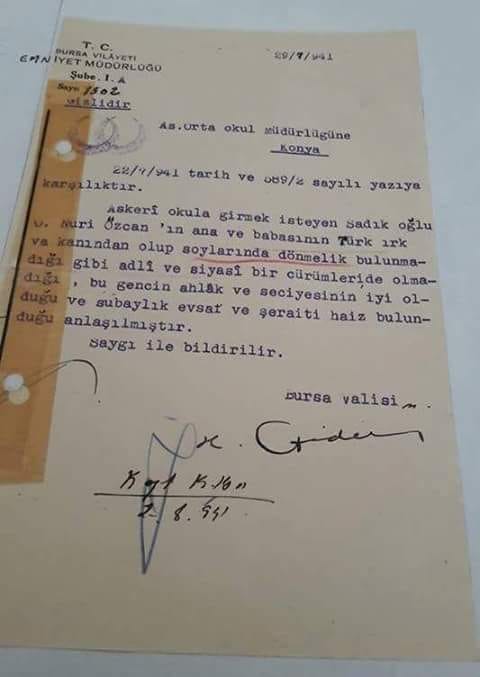 T. C.
BURSA VİLÂYETİ
EMNİYET MÜDÜRLÜĞÜ
Şube. I. A
Sayı 1502
Gizlidir
29/7/941
As.Orta okul Müdürlügüne
Konya
22/7/941 tarih ve 589/2 sayılı yazıya
karşılıktır.
Askerî okula girmek isteyen Sadık oğlu
Nuri Özcan 'ın ana ve babasının Türk ırk
ve kanından olup soylarında dönmelik bulunma-
dığı gibi adlî ve siyasî bir cürümleride olma-
dığı , bu gencin ahlâk ve seciyesinin iyi ol-
duğu ve subaylık evsaf ve şeraiti haiz bulun-
duğu anlaşılmıştır.
Saygı ile bildirilir.
Bursa Valisi
2. 8. 941